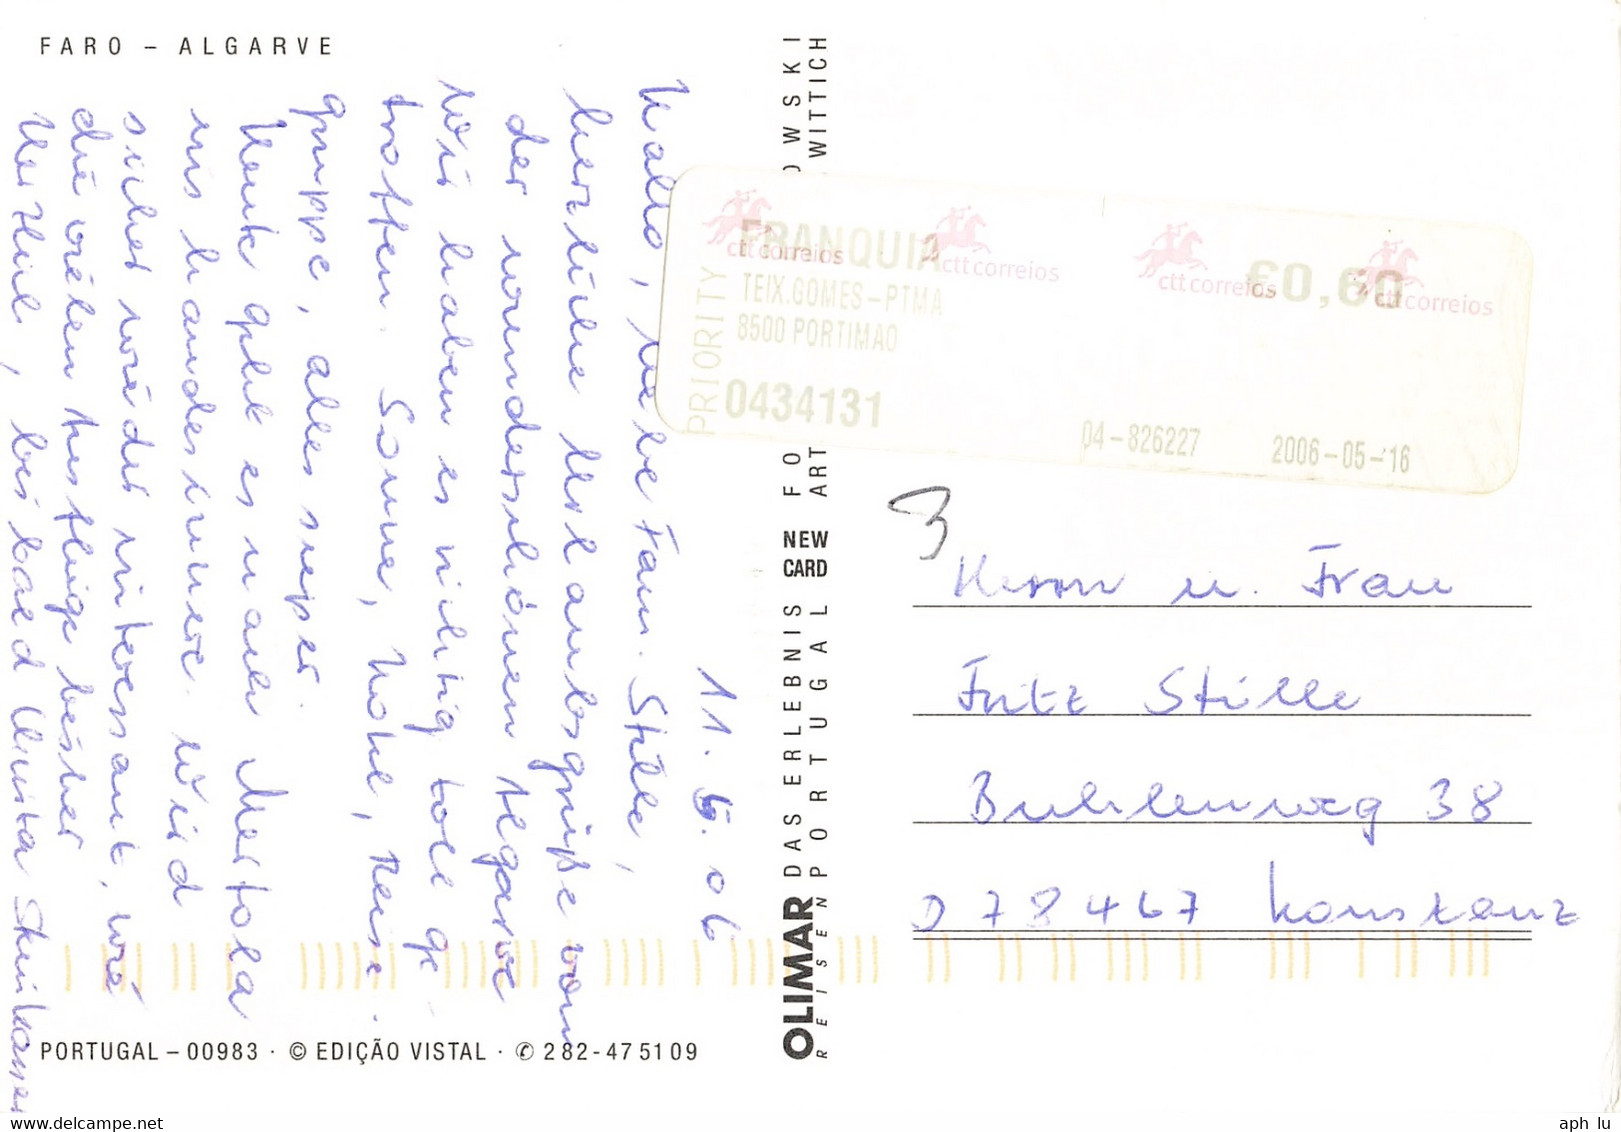 FARO – ALGARVE
11.5.06
Hallo, liebe Fam. Stille,
herzliche Urlaubsgrüße vom
der wunderschönen Algarve
Wir haben es richtig toll ge-
troffen. Sonne, Hotel, Reise-
gruppe, alles super.
Heute geht es nach Mertola
ins Landesinnere. Wird
sicher wieder interessant, wie
die vielen Ausflüge bisher
Herzlich, bis bald Christa
PORTUGAL – 00983 · © EDIÇÃO VISTAL · ✆ 282-475109
OLIMAR DAS ERLEBNIS NEW
REISEN PORTUGAL CARD
FO OWSKI
ART WITTICH
FRANQUIA €0,60
TEIX.GOMES-PTMA
8500 PORTIMAO
PRIORITY
0434131
04-826227 2006-05-16
ctt correios ctt correios ctt correios ctt correios
Herrn u. Frau
Fritz Stille
Buhlenweg 38
D 78467 Konstanz
aph lu
www.delcampe.net